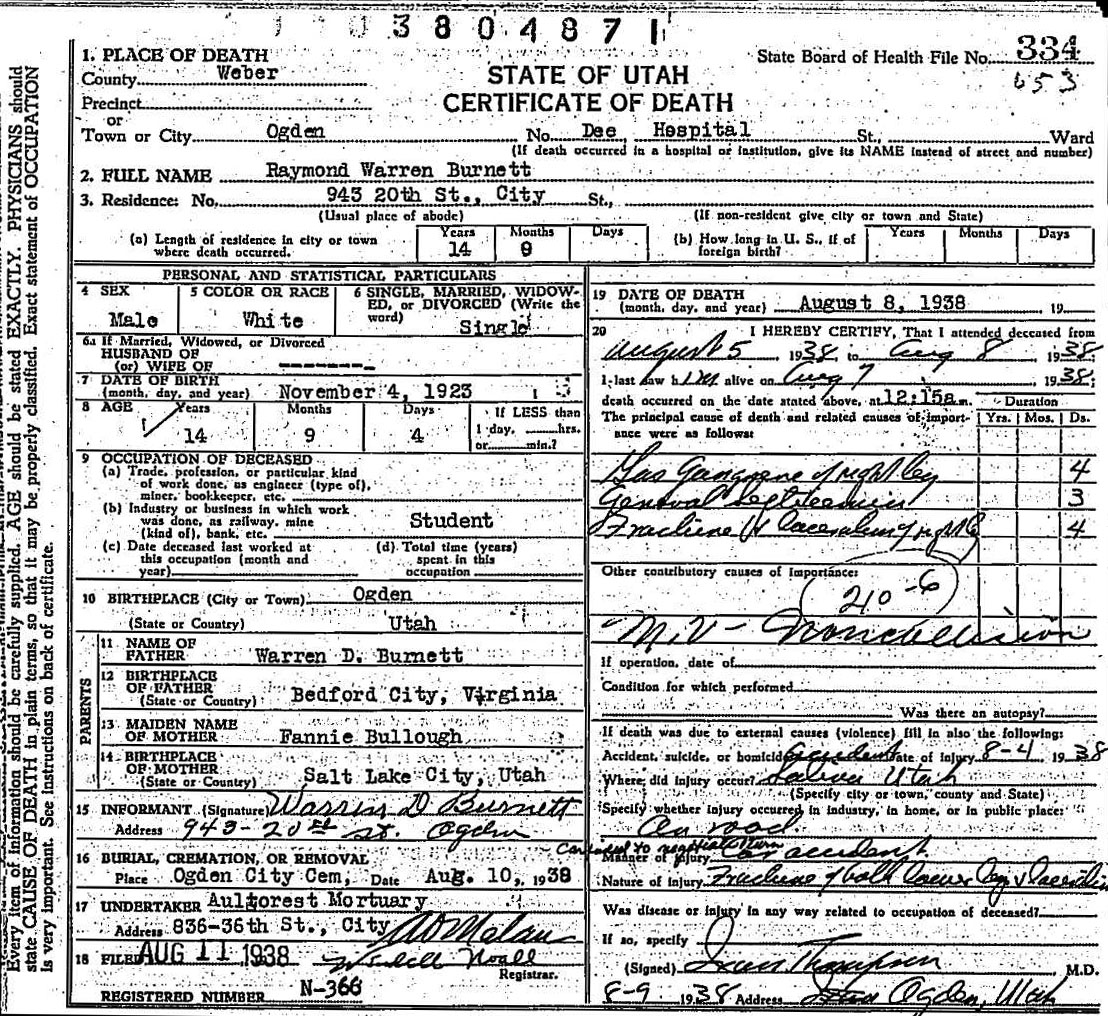 3804871
State Board of Health File No. 334
653
1. PLACE OF DEATH
County Weber
STATE OF UTAH
CERTIFICATE OF DEATH
Precinct
or
Town or City Ogden No. Dee Hospital St., Ward
(If death occurred in a hospital or institution, give its NAME instead of street and number)
2. FULL NAME Raymond Warren Burnett
3. Residence: No. 943 20th St., City St.,
(Usual place of abode) (If non-resident give city or town and State)
(a) Length of residence in city or town where death occurred. Years 14 Months 9 Days
(b) How long in U. S., if of foreign birth? Years Months Days
PERSONAL AND STATISTICAL PARTICULARS
4 SEX Male
5 COLOR OR RACE White
6 SINGLE, MARRIED, WIDOWED, or DIVORCED (Write the word) Single
6a If Married, Widowed, or Divorced
HUSBAND OF
(or) WIFE OF -------
7 DATE OF BIRTH
(month, day, and year) November 4, 1923
8 AGE Years 14 Months 9 Days 4 If LESS than 1 day, hrs. or min.?
9 OCCUPATION OF DECEASED
(a) Trade, profession, or particular kind of work done, as engineer (type of), miner, bookkeeper, etc.
(b) Industry or business in which work was done, as railway, mine (kind of), bank, etc. Student
(c) Date deceased last worked at this occupation (month and year)
(d) Total time (years) spent in this occupation
10 BIRTHPLACE (City or Town) Ogden
(State or Country) Utah
PARENTS
11 NAME OF FATHER Warren D. Burnett
12 BIRTHPLACE OF FATHER (State or Country) Bedford City, Virginia
13 MAIDEN NAME OF MOTHER Fannie Bullough
14 BIRTHPLACE OF MOTHER (State or Country) Salt Lake City, Utah
15 INFORMANT (Signature) Warren D Burnett
Address 943-20th St. Ogden
16 BURIAL, CREMATION, OR REMOVAL
Place Ogden City Cem, Date Aug. 10, 1938
17 UNDERTAKER Aultorest Mortuary
Address 836-36th St., City
18 FILED AUG 11 1938
Registrar.
REGISTERED NUMBER N-366
19 DATE OF DEATH
(month, day, and year) August 8, 1938 19
20 I HEREBY CERTIFY, That I attended deceased from
August 5, 1938, to Aug 8 1938;
I last saw him alive on Aug 7 1938;
death occurred on the date stated above, at 12:15a m. Duration
The principal cause of death and related causes of importance were as follows: Yrs. Mos. Ds.
Gas Gangrene of right leg 4
General Septicemia 3
Fracture & laceration of right leg 4
Other contributory causes of importance:
210-6
M.V- Noncollision
If operation, date of
Condition for which performed
Was there an autopsy?
If death was due to external causes (violence) fill in also the following:
Accident, suicide, or homicide accident Date of injury 8-4 1938
Where did injury occur? Salina Utah
(Specify city or town, county and State)
Specify whether injury occurred in industry, in home, or in public place:
On road
Car failed to negotiate turn
Manner of injury Car accident
Nature of injury Fracture of both lower leg & laceration
Was disease or injury in any way related to occupation of deceased?
If so, specify
(Signed) Ivan Thompson M.D.
8-9 1938 Address Ogden, Utah
Every item of information should be carefully supplied. AGE should be stated EXACTLY. PHYSICIANS should
state CAUSE OF DEATH in plain terms, so that it may be properly classified. Exact statement of OCCUPATION
is very important. See instructions on back of certificate.